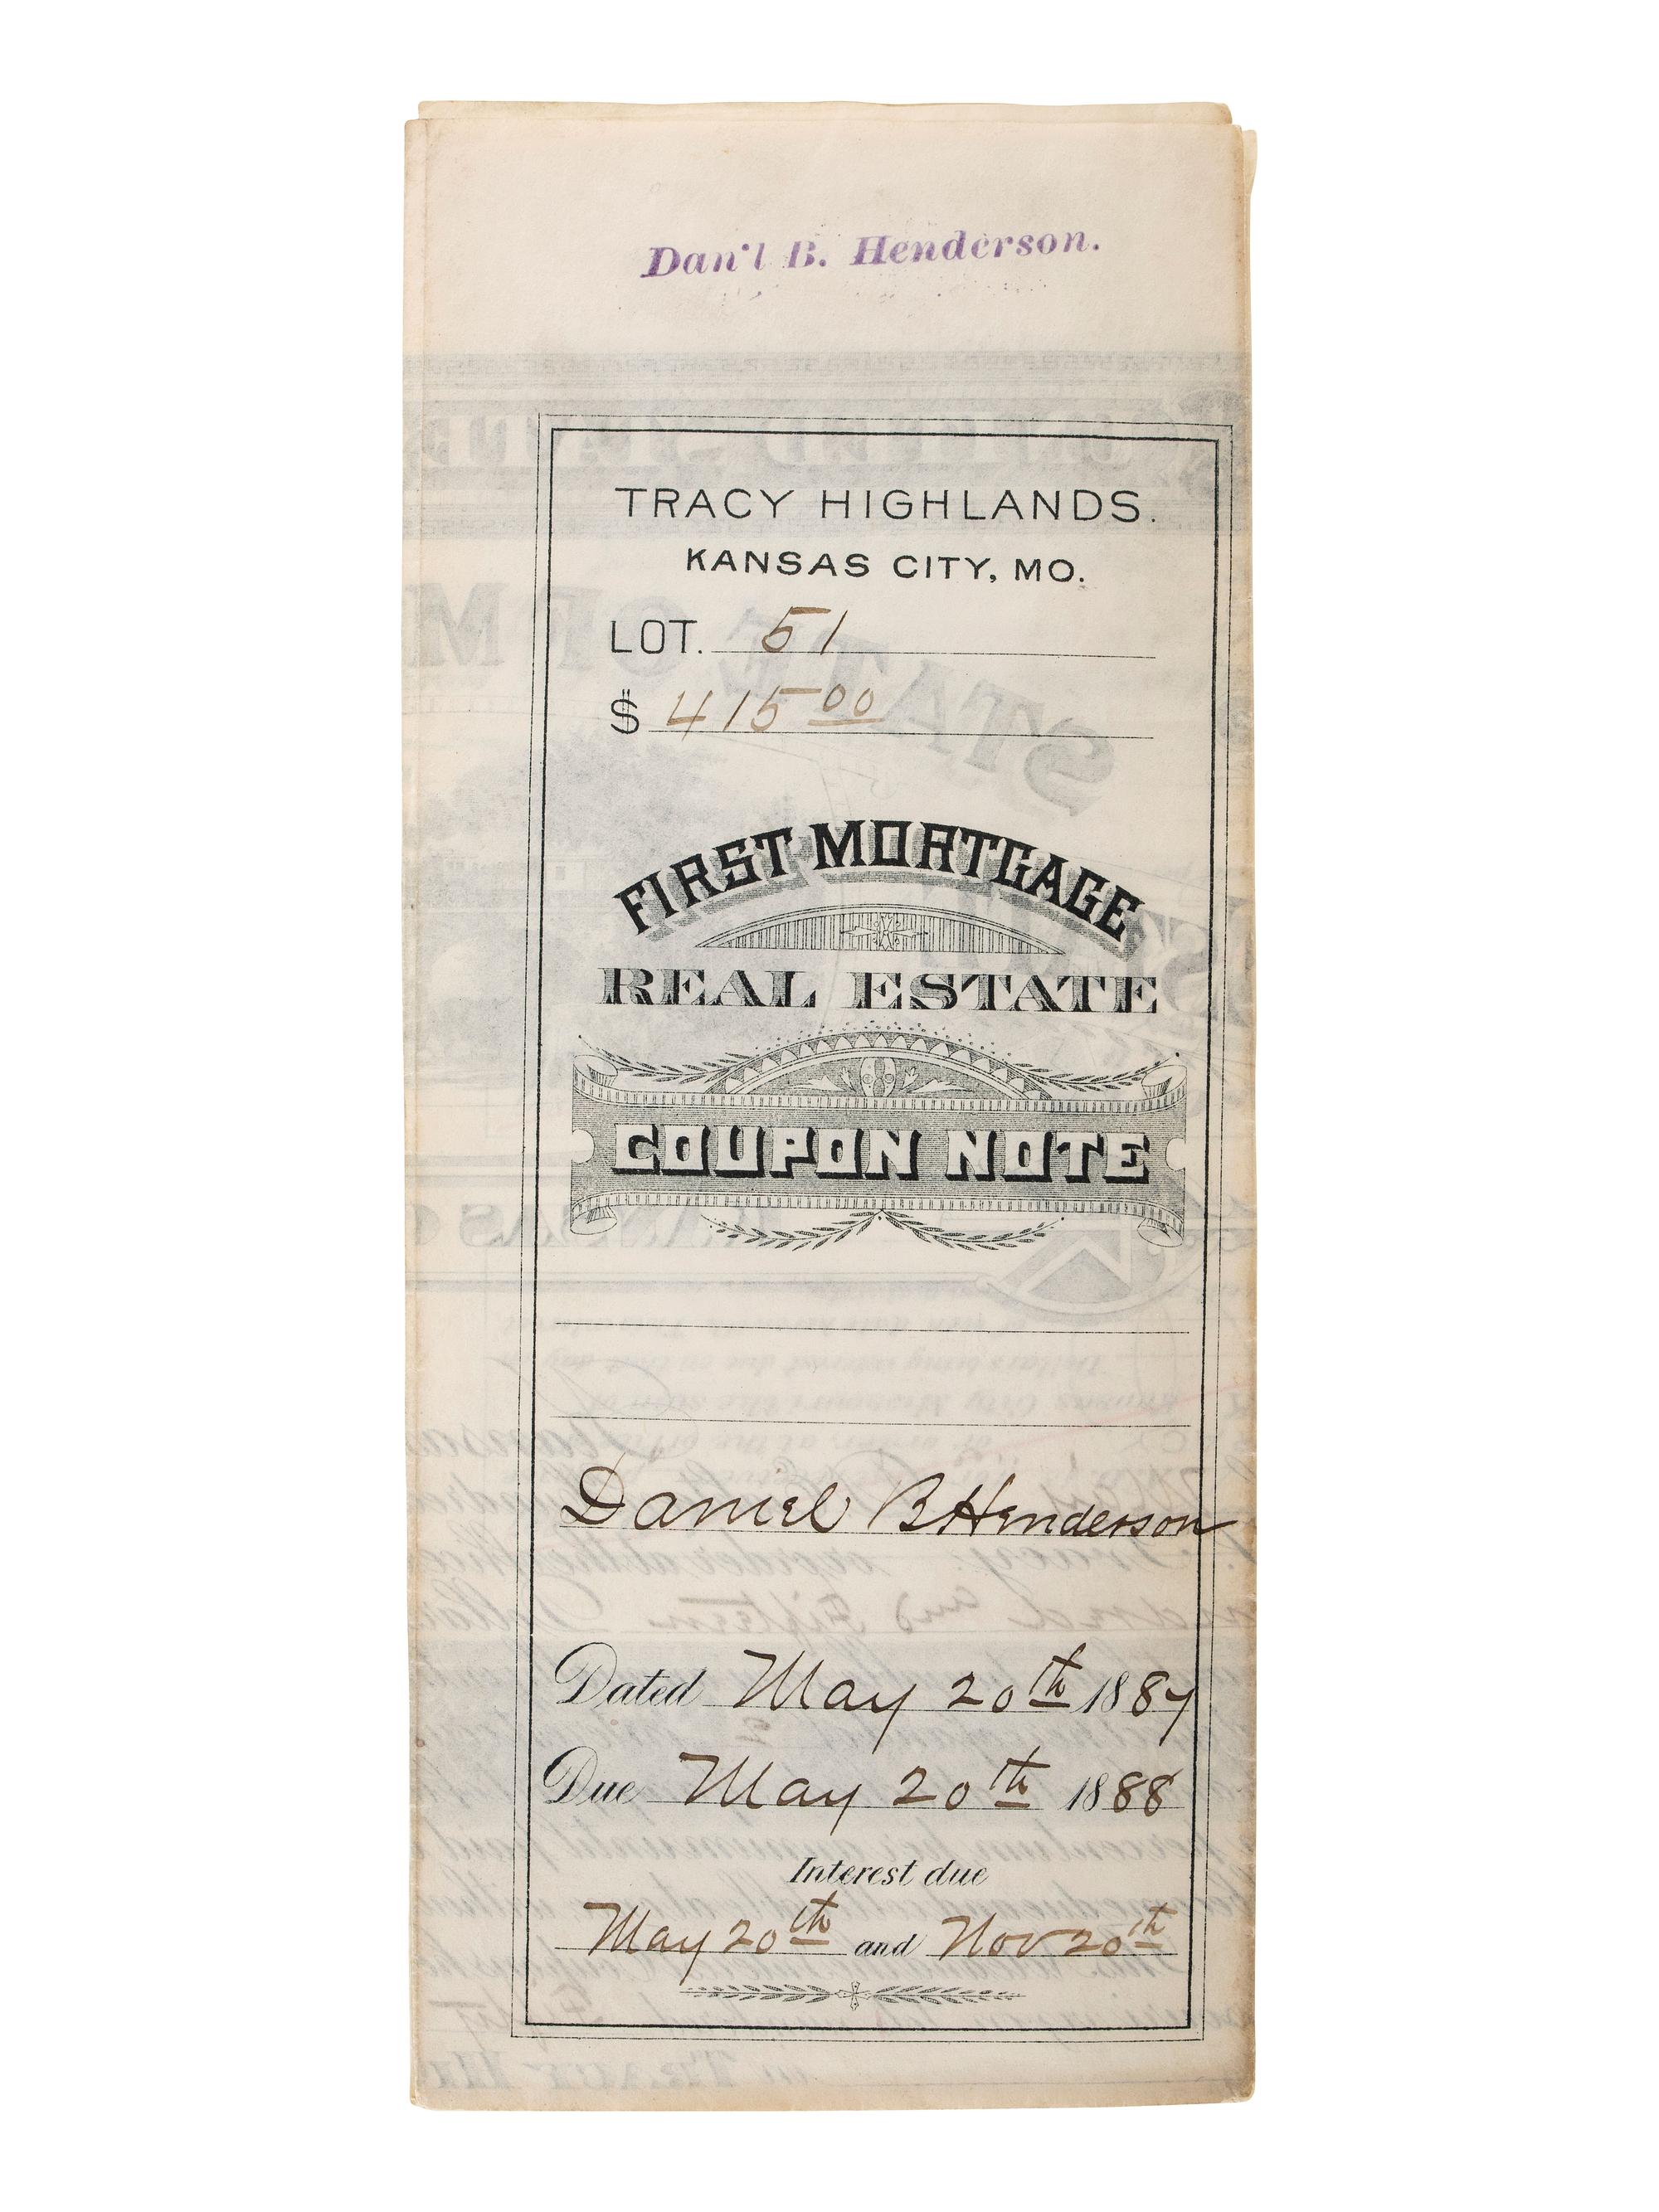 Dan'l B. Henderson.
TRACY HIGHLANDS.
KANSAS CITY, MO.
LOT. 51
$ 415 00
FIRST MORTGAGE
REAL ESTATE
COUPON NOTE
Daniel B Henderson
Dated May 20th 1887
Due May 20th 1888
Interest due
May 20th and Nov 20th